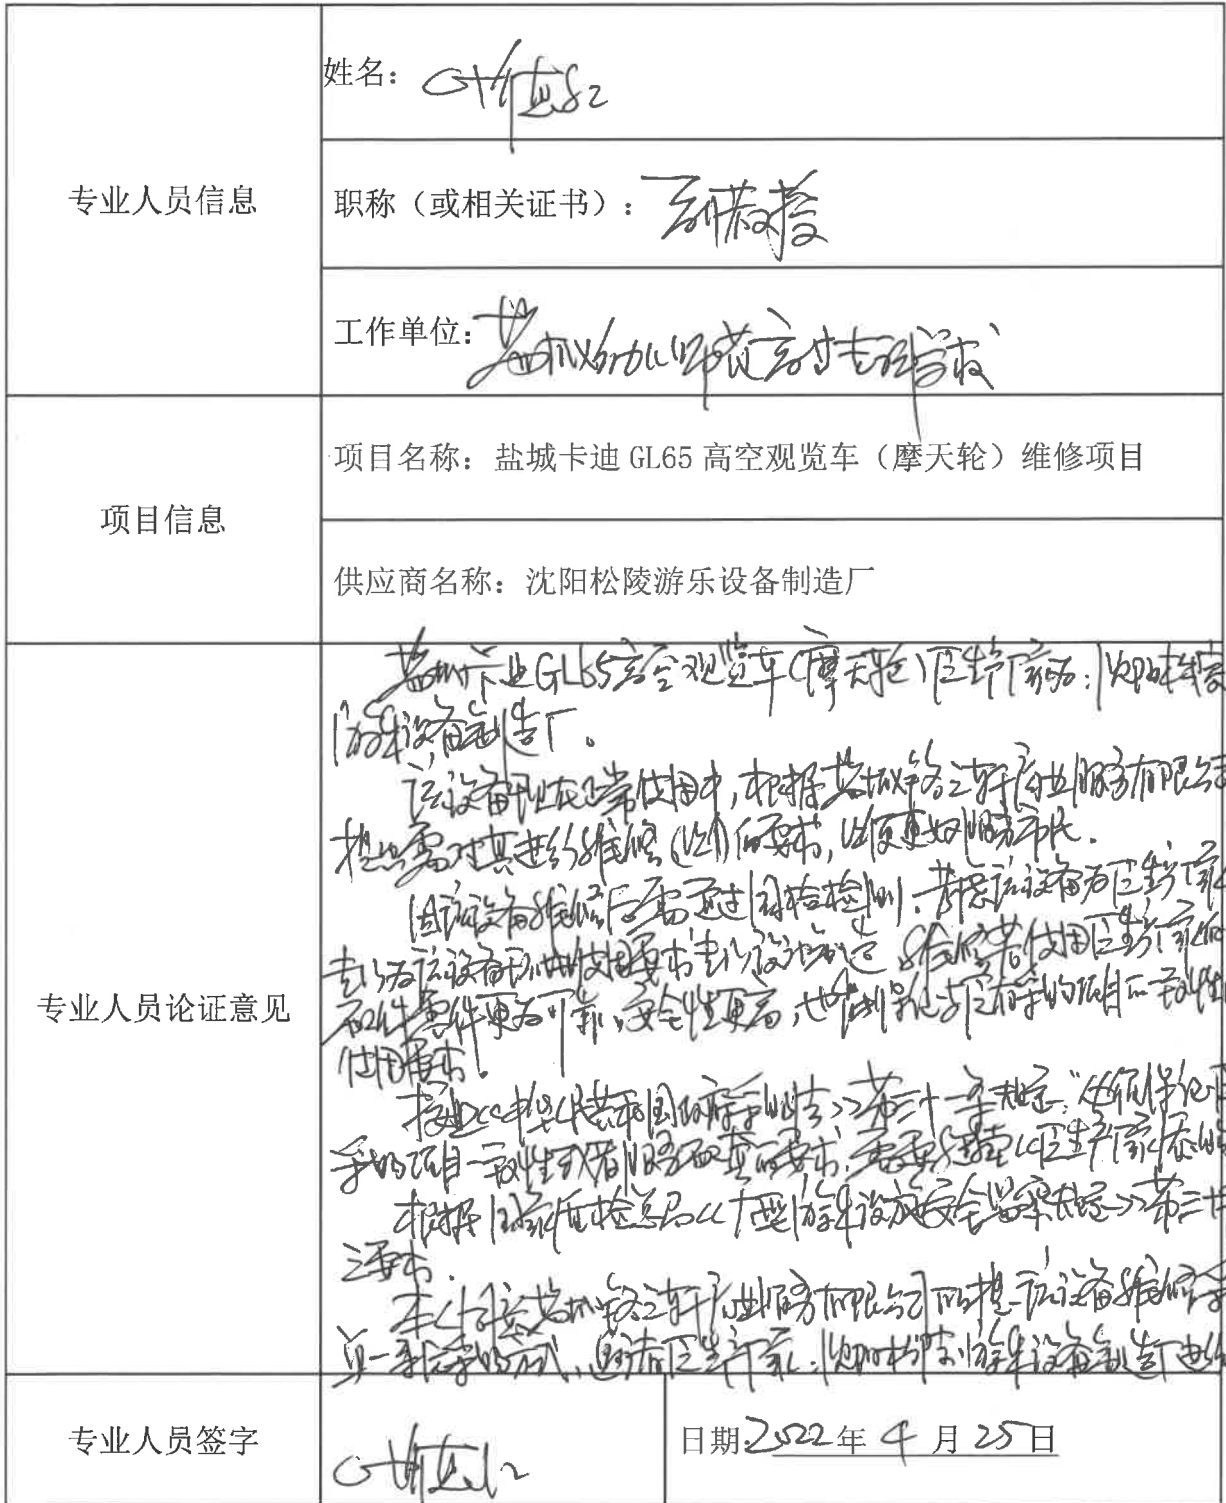 专业人员信息
姓名：
职称（或相关证书）：副教授
工作单位：盐城幼儿师范高等专科学校
项目信息
项目名称：盐城卡迪 GL65 高空观览车（摩天轮）维修项目
供应商名称：沈阳松陵游乐设备制造厂
专业人员论证意见
盐城卡迪GL65高空观览车（摩天轮）原生产厂家为：沈阳松陵
游乐设备制造厂。
该设备现在正常使用中，根据盐城 商业服务有限公司
提出需对其进行维修 的要求，以便更好服务市民。
因该设备维修后需通过国检检测，考虑该设备为原生产厂家
专门为该设备 使用要求专门设计制造，维修若使用原生产厂家的
配件零件更为可靠，安全性更高，也 保证与原有采购项目的一致性
使用要求。
按照《中华人民共和国政府采购法》第三十一条规定："必须保证原有
采购项目一致性或者服务配套的要求，需要继续从原生产厂家添购
根据国家质检总局《大型游乐设施安全监察规定》第二十
之要求。
本人同意盐城 商业服务有限公司所提 该设备维修采
单一来源采购方式，邀请原生产厂家：沈阳松陵游乐设备制造厂进行
专业人员签字
日期：2022年 4 月 25日